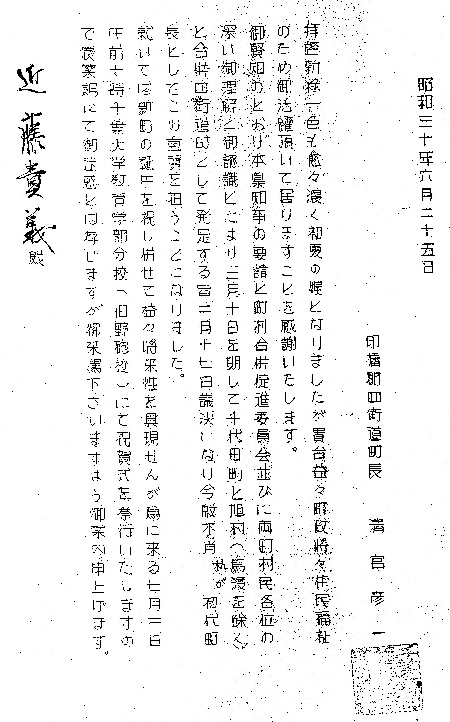 昭和三十年六月二十五日
印旛郡四街道町長 清宮彦一
拝啓新緑一色も愈々濃く初夏の候となりましたが貴台益々町政将々住民福祉
のため御活躍頂いて居りますことを感謝いたします。
御賢知のとおり本県知事の要請と町村合併促進委員会並びに両町村民各位の
深い御理解と御認識とにより三月十日を期して千代田町と旭村(鳥渡を除く)
と合併四街道町として発足する旨二月十七日議決になり今般不肖 私が 初代町
長としてこの重責を担うことになりました。
就いては新町の誕生を祝し併せて益々将来性を具現せんが為に来る七月一日
午前十時千葉大学教育学部分校(旧野砲校)にて祝賀式を挙行いたしますの
で農繁期にて御迷惑とは存じますが御来場下さいますよう御案内申上げます。
近藤貴義殿